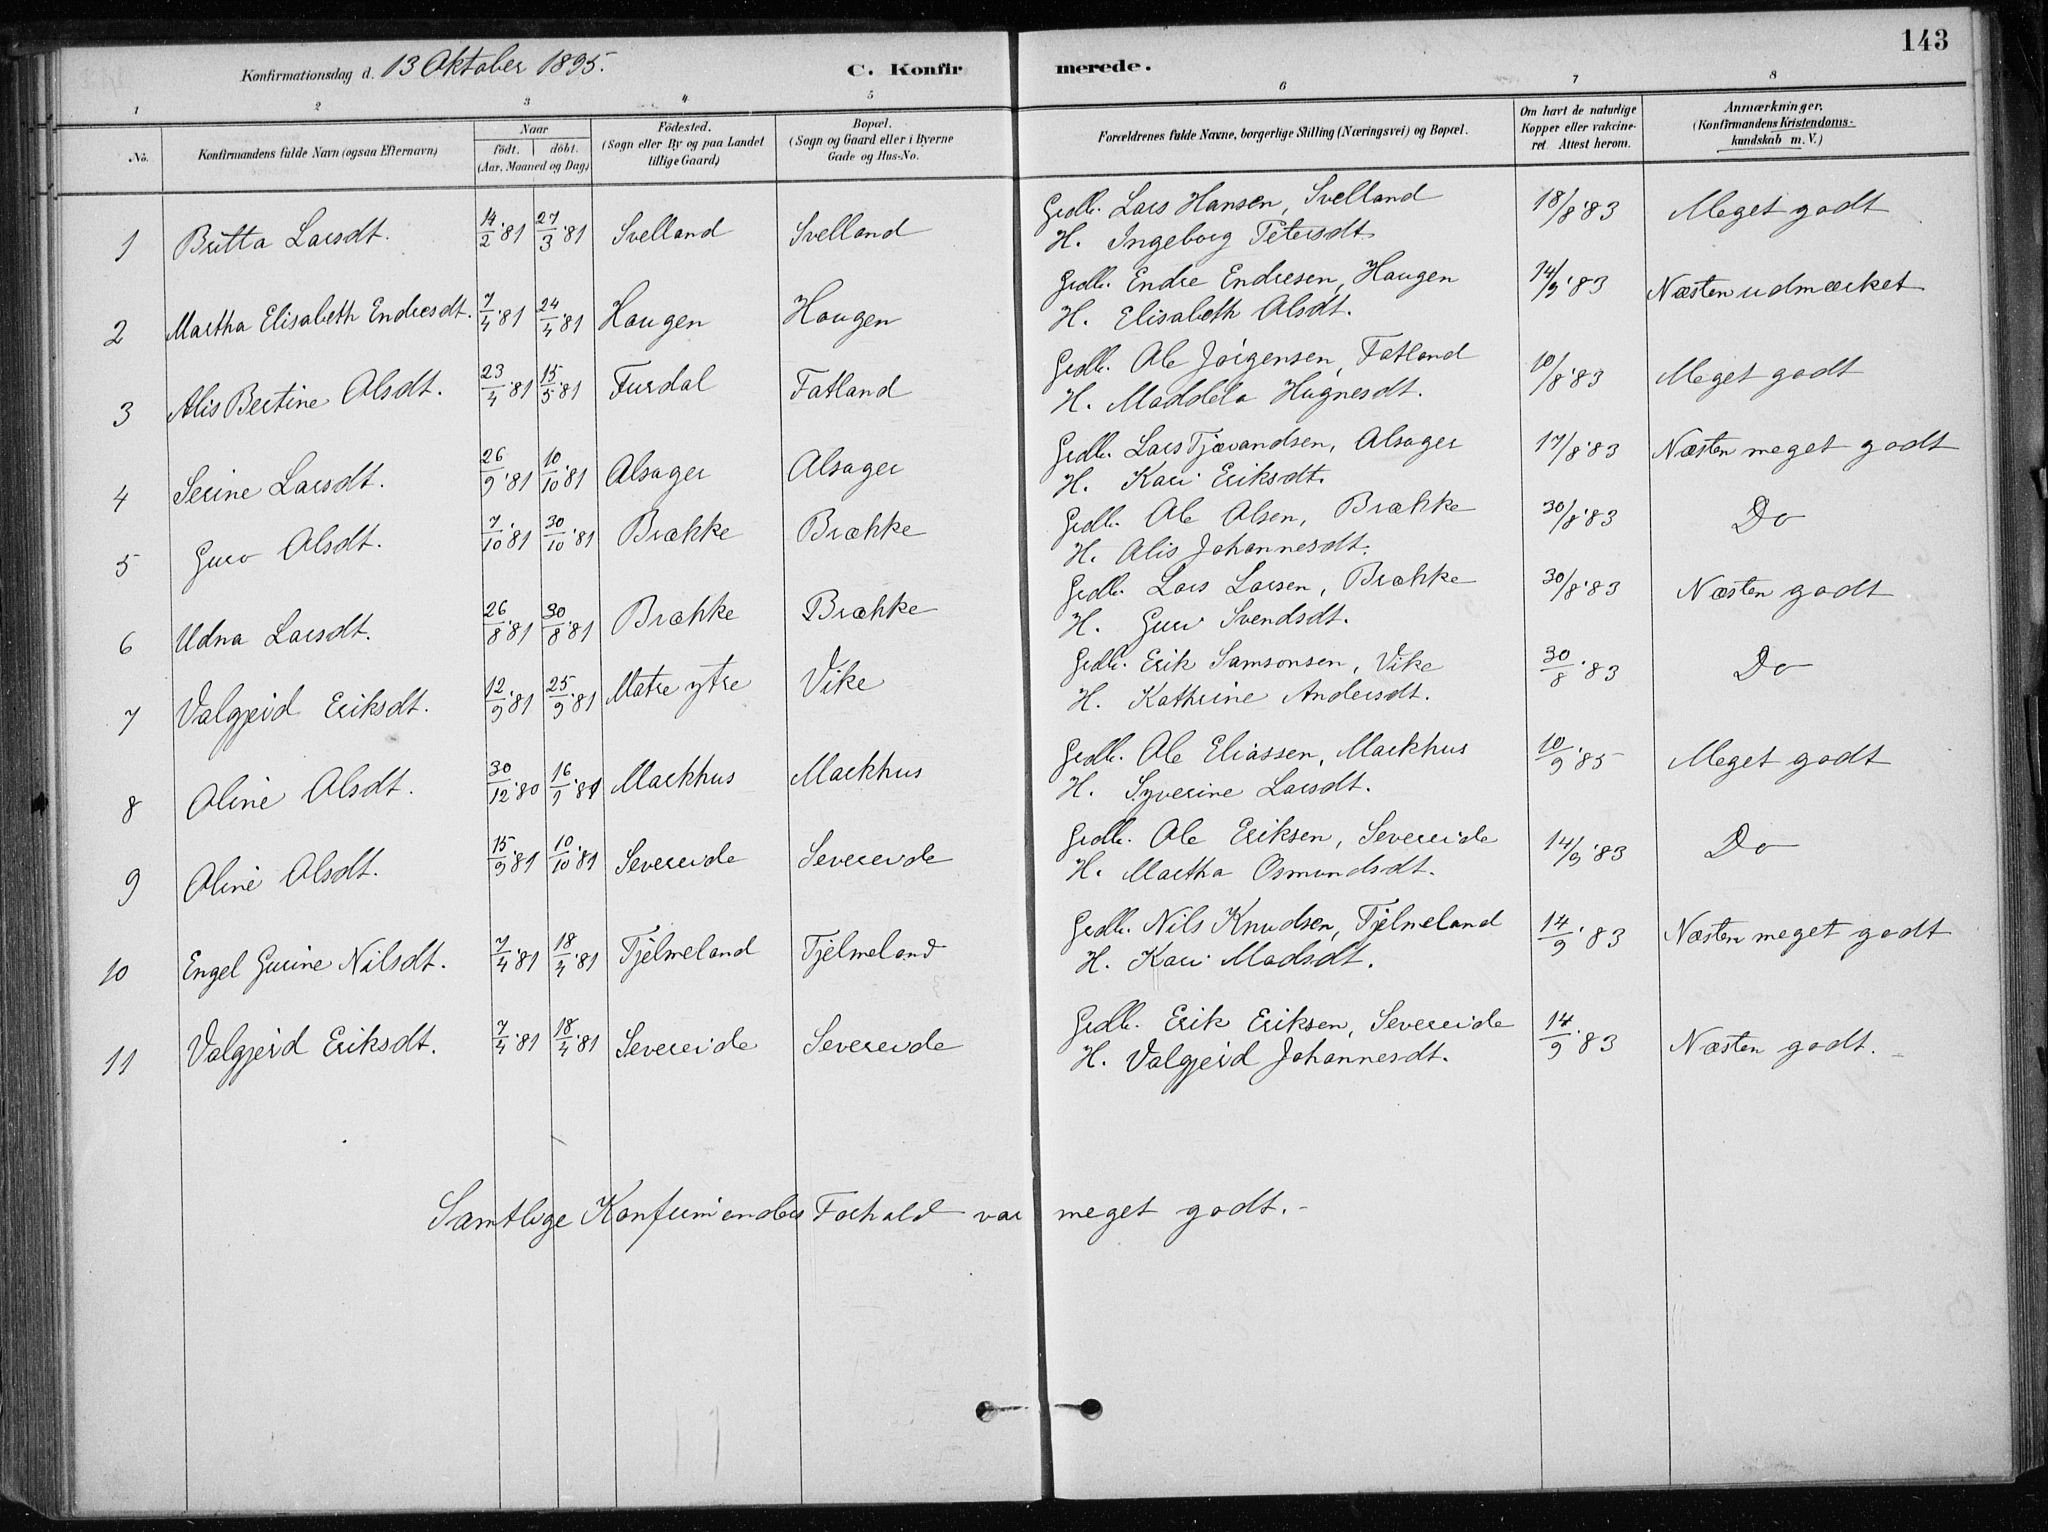 143
Konfirmationsdag d. 13 Oktober 1895. C. Konfir merede.
1 2 3 4 5 6 7 8
No. Konfirmandens fulde Navn (ogsaa Efternavn) Naar födt. döbt. (Aar, Maaned og Dag) Födested. (Sogn eller By og paa Landet tillige Gaard) Bopæl. (Sogn og Gaard eller i Byerne Gade og Hus-No. Forældrenes fulde Navne, borgerlige Stilling (Næringsvei) og Bopæl. Om havt de naturlige Kopper eller vakcineret. Attest herom. Anmærkninger. (Konfirmandens Kristendomskundskab m. V.)
1 Britta Larsdt. 14/2 '81 27/3 '81 Svelland Svelland Grdbr. Lars Hansen, Svelland 18/8 '83 Meget godt
H. Ingeborg Petersdt
2 Martha Elisabeth Endresdt. 7/4 '81 24/4 '81 Haugen Haugen Grdbr. Endre Endresen, Haugen 14/9 '83 Næsten udmærket
H. Elisabeth Olsdt.
3 Alis Bertine Olsdt. 23/4 '81 15/5 '81 Furdal Fatland Grdbr. Ole Jörgensen, Fatland 10/8 '83 Meget godt
H. Maddela Hugnesdt.
4 Serine Larsdt. 26/9 '81 10/10 '81 Alsager Alsager Grdbr. Lars Tjærandsen, Alsager 17/8 '83 Næsten meget godt
H. Kari Eriksdt.
5 Guro Olsdt. 7/10 '81 30/10 '81 Brække Brække Grdbr. Ole Olsen, Brække 30/8 '83 Do
H. Alis Johannesdt.
6 Udna Larsdt. 26/8 '81 30/8 '81 Brække Brække Grdbr. Lars Larsen, Brække 30/8 '83 Næsten godt
H. Guro Svendsdt.
7 Valgjerd Eriksdt. 12/9 '81 25/9 '81 Matre ytre Vike Grdbr. Erik Samsonsen, Vike 30/8 '83 Do
H. Kathrine Andersdt.
8 Oline Olsdt. 30/12 '80 16/1 '81 Markhus Markhus Grdbr. Ole Eliassen, Markhus 10/9 '85 Meget godt
H. Syverine Larsdt.
9 Oline Olsdt. 15/9 '81 10/10 '81 Severeide Severeide Grdbr. Ole Eriksen, Severeide 14/9 '83 Do
H. Martha Osmundsdt.
10 Engel Gurine Nilsdt. 7/4 '81 18/4 '81 Tjelmeland Tjelmeland Grdbr. Nils Knudsen, Tjelmeland 14/9 '83 Næsten meget godt
H. Kari Madsdt.
11 Valgjerd Eriksdt. 7/4 '81 18/4 '81 Severeide Severeide Grdbr. Erik Eriksen, Severeide 14/9 '83 Næsten godt.
H. Valgjerd Johannesdt.
Samtlige Konfirmanders Forhold var meget godt.